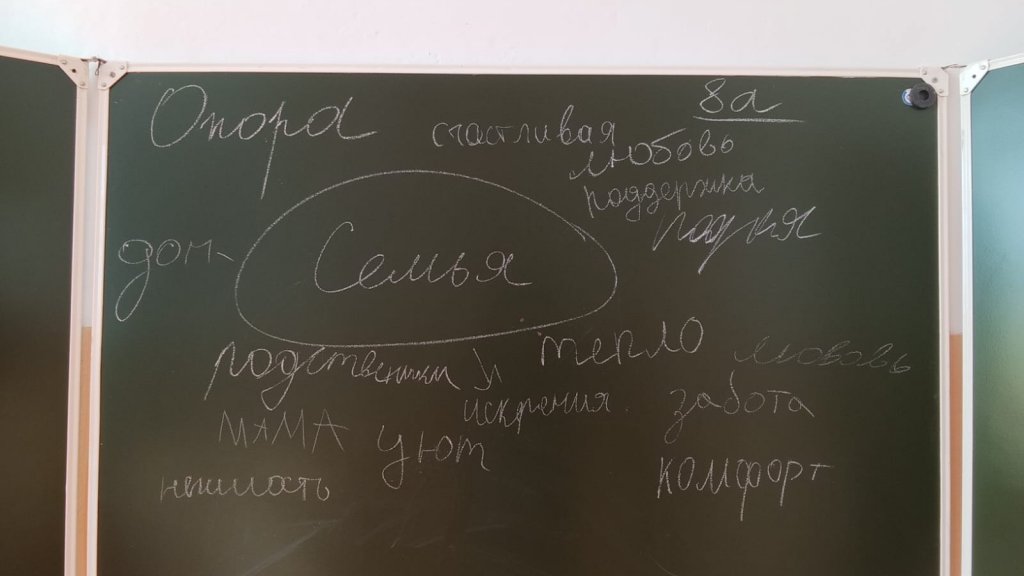 Опора
8а
счастливая
любовь
поддержка
дом-
Семья
родственники
тепло
любовь
искрения
забота
МАМА
уют
комфорт